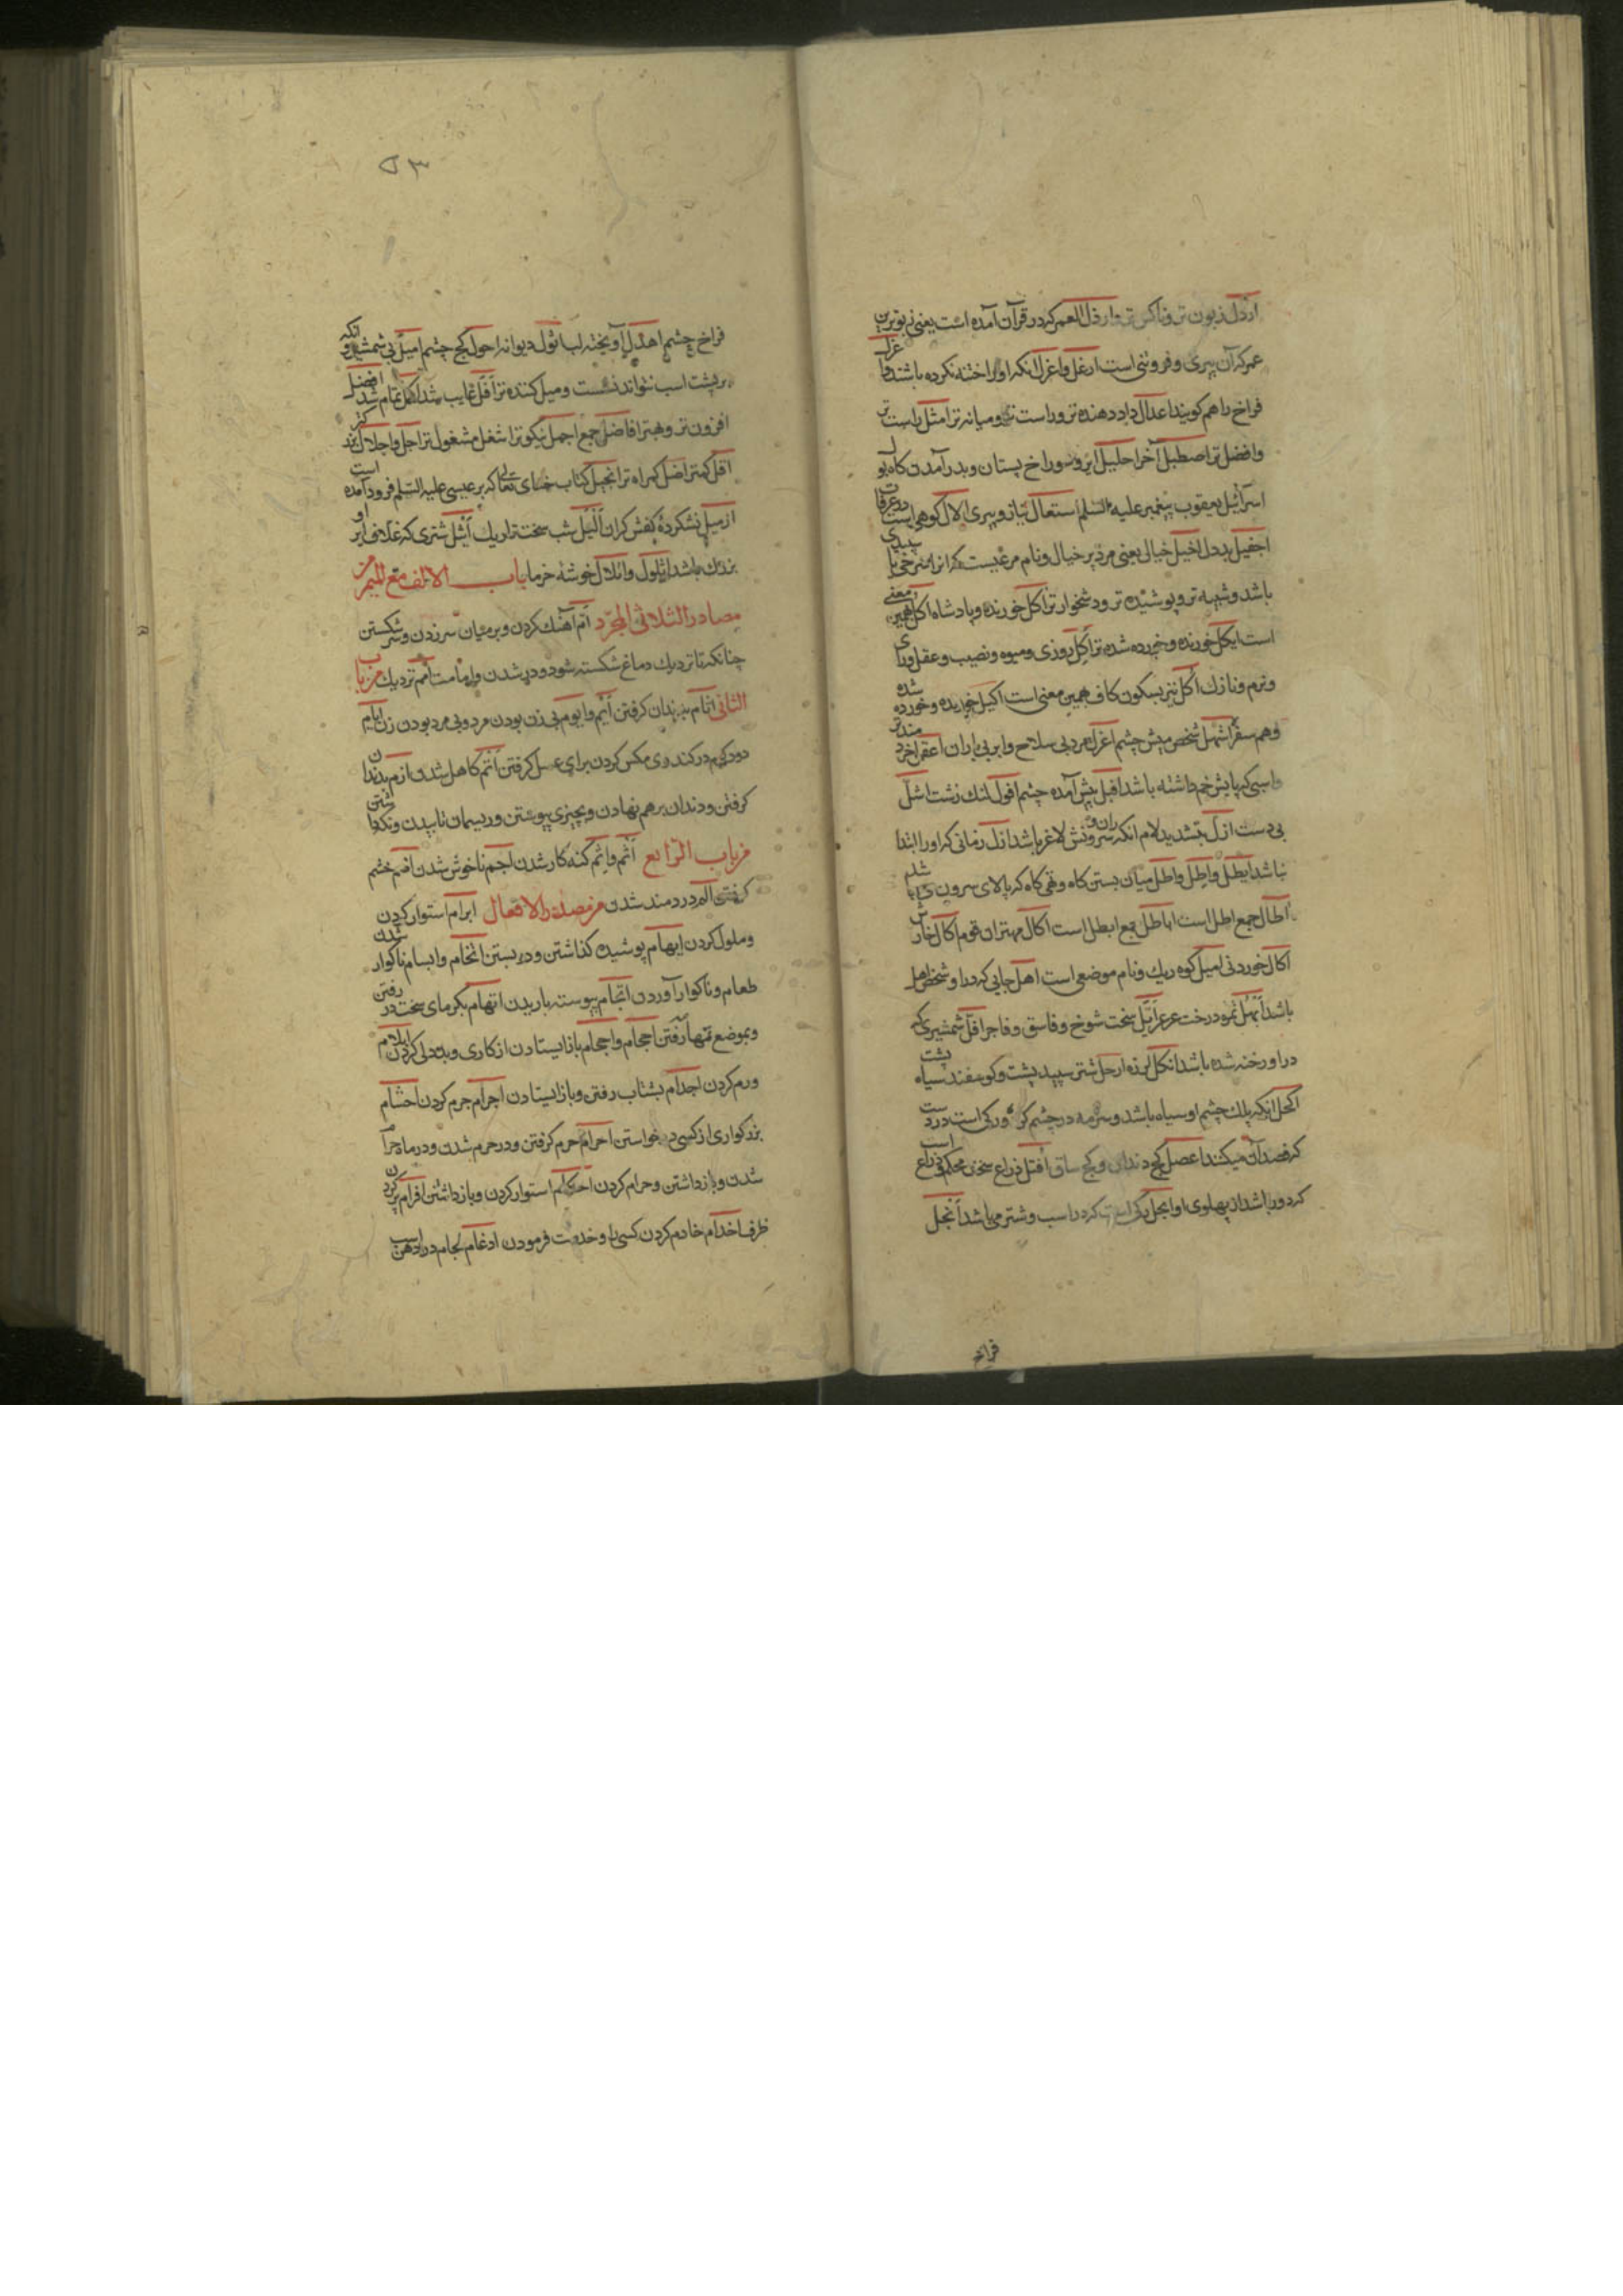 ارذل زبون تر و ناکس تر و ارذل العمر که در قرآن آمده است یعنی زبون ترین
عمر که آن پیری و فروتنی است ارغل و اغرل آنکه او را ختنه نکرده باشند و
فراخ را هم گویند اعدال داد دهنده تر و راست تر و میانه تر امثل راست تر
و افضل تر اصطبل آخر احلیل ایر و سوراخ پستان و بدر آمدن گاه بول
اسرائیل یعقوب پیغمبر علیه السلم استعال نیاز و پیری الال کوهی است در عرفات
اجفیل بددل اخیل خیالی یعنی مرد پر خیال و نام مرغیست که
باشد و شبیه تر و پوشیده تر و دشخوار تر اکل خورنده و پادشاه اکل همین معنی
است ایکل خورنده و خورده شده تر اکل روزی و میوه و نصیب و عقل و رای
و نرم و نازک اکل نیز بسکون کاف همین معنی است اکیل خوریده و خورده شده
و هم سفره اشهل شخص میش چشم اغرل مرد بی سلاح و ابر بی باران اعقل خردمندتر
و اسپی که پایش خم داشته باشد اقبل پیش آمده چشم اقول لنک زشت اشل
بی دست ازل بتشدید لام آنکه سرونش لاغر باشد ازل زمانی که او را ابتدا
نباشد ایطل و اطل و اطل میان بستن گاه وقمی گاه که بالای سرون
اطال جمع اطل است ایاطل جمع ایطل است اکال مهتران قوم اکال خارش
اکال خوردنی امیل کوه ریک و نام موضعی است اهل جایی که در او شخص اهل
باشد ابهل ثمره درخت عرعر ابیل سخت شوخ و فاسق و فاجر افل شمشیری که
در او رخنه شده باشد انکل لرزه ارحل شتر سپید پشت و گوسفند سیاه پشت
اکحل آنکه پلک چشم او سیاه باشد و سرمه در چشم کرده و رکی است در دست
که فصد آن میکنند اعصل کج دندان و کج ساق افتل ذراع سخن محکم و ذراع
که دور باشد از پهلوی او ابجل رکی است که در اسب و شتر می باشد انجل
فراخ
۵۳
فراخ چشم اهدل آویخته لب اثول دیوانه احول کج چشم امیل بی شمشیر و آنکه
بر پشت اسب نتواند نشست و میل کننده تر افل غایب شد اکمل تمام شد افضل
افزون تر و بهتر افاضل جمع اجمل نیکوتر اشغل مشغول تر اجل و اجلال بزرگتر
اقل کمتر اضل گمراه تر انجیل کتاب خدای تعالی که بر عیسی علیه السلم فرود آمده است
ازمیل نشکرده کفش گران الیل شب سخت تاریک اثیل شتری که غلاف ایر او
بزرگ باشد اثلول و اثلال خوشه خرما باب الالف مع المیم من
مصادر الثلاثی المجرد ام آهنک کردن و بر میان سر زدن و سر شکستن
چنانکه تا نزدیک دماغ شکسته شود و دیر شدن و امامت امم نزدیک من باب
الثانی اثام بدندان گرفتن ایم و ایوم بی زن بودن مرد و بی مرد بودن زن ایام
دود کردم در کندوی مگس کردن برای عسل گرفتن اتم کاهل شدن ازم بدندان
گرفتن و دندان بر هم نهادن و بچیزی پیوستن و ریسمان تابیدن و نکه داشتن
من باب الرابع اثم و اثم گنه کار شدن اجم ناخوش شدن اضم خشم
گرفتن الم دردمند شدن من مصادر الافعال ابرام استوار کردن
و ملول کردن ابهام پوشیده گذاشتن و در بستن اتخام و ابسام ناگوار شدن
طعام و ناگوار آوردن اثجام پیوسته باریدن اتهام بگرمای سخت در رفتن
و بموضع تهامه رفتن احجام و اجحام باز ایستادن از کاری و بددلی کردن ایلام
و رم کردن اجدام بشتاب رفتن و باز ایستادن اجرام جرم کردن احشام
بزرگواری از کسی در خواستن احرام حرم گرفتن و در حرم شدن و در ماه حرام
شدن و باز داشتن و حرام کردن احکام استوار کردن و باز داشتن افرام پر کردن
ظرف اخدام خادم کردن کسی را و خدمت فرمودن ادغام لجام در دهن اسب